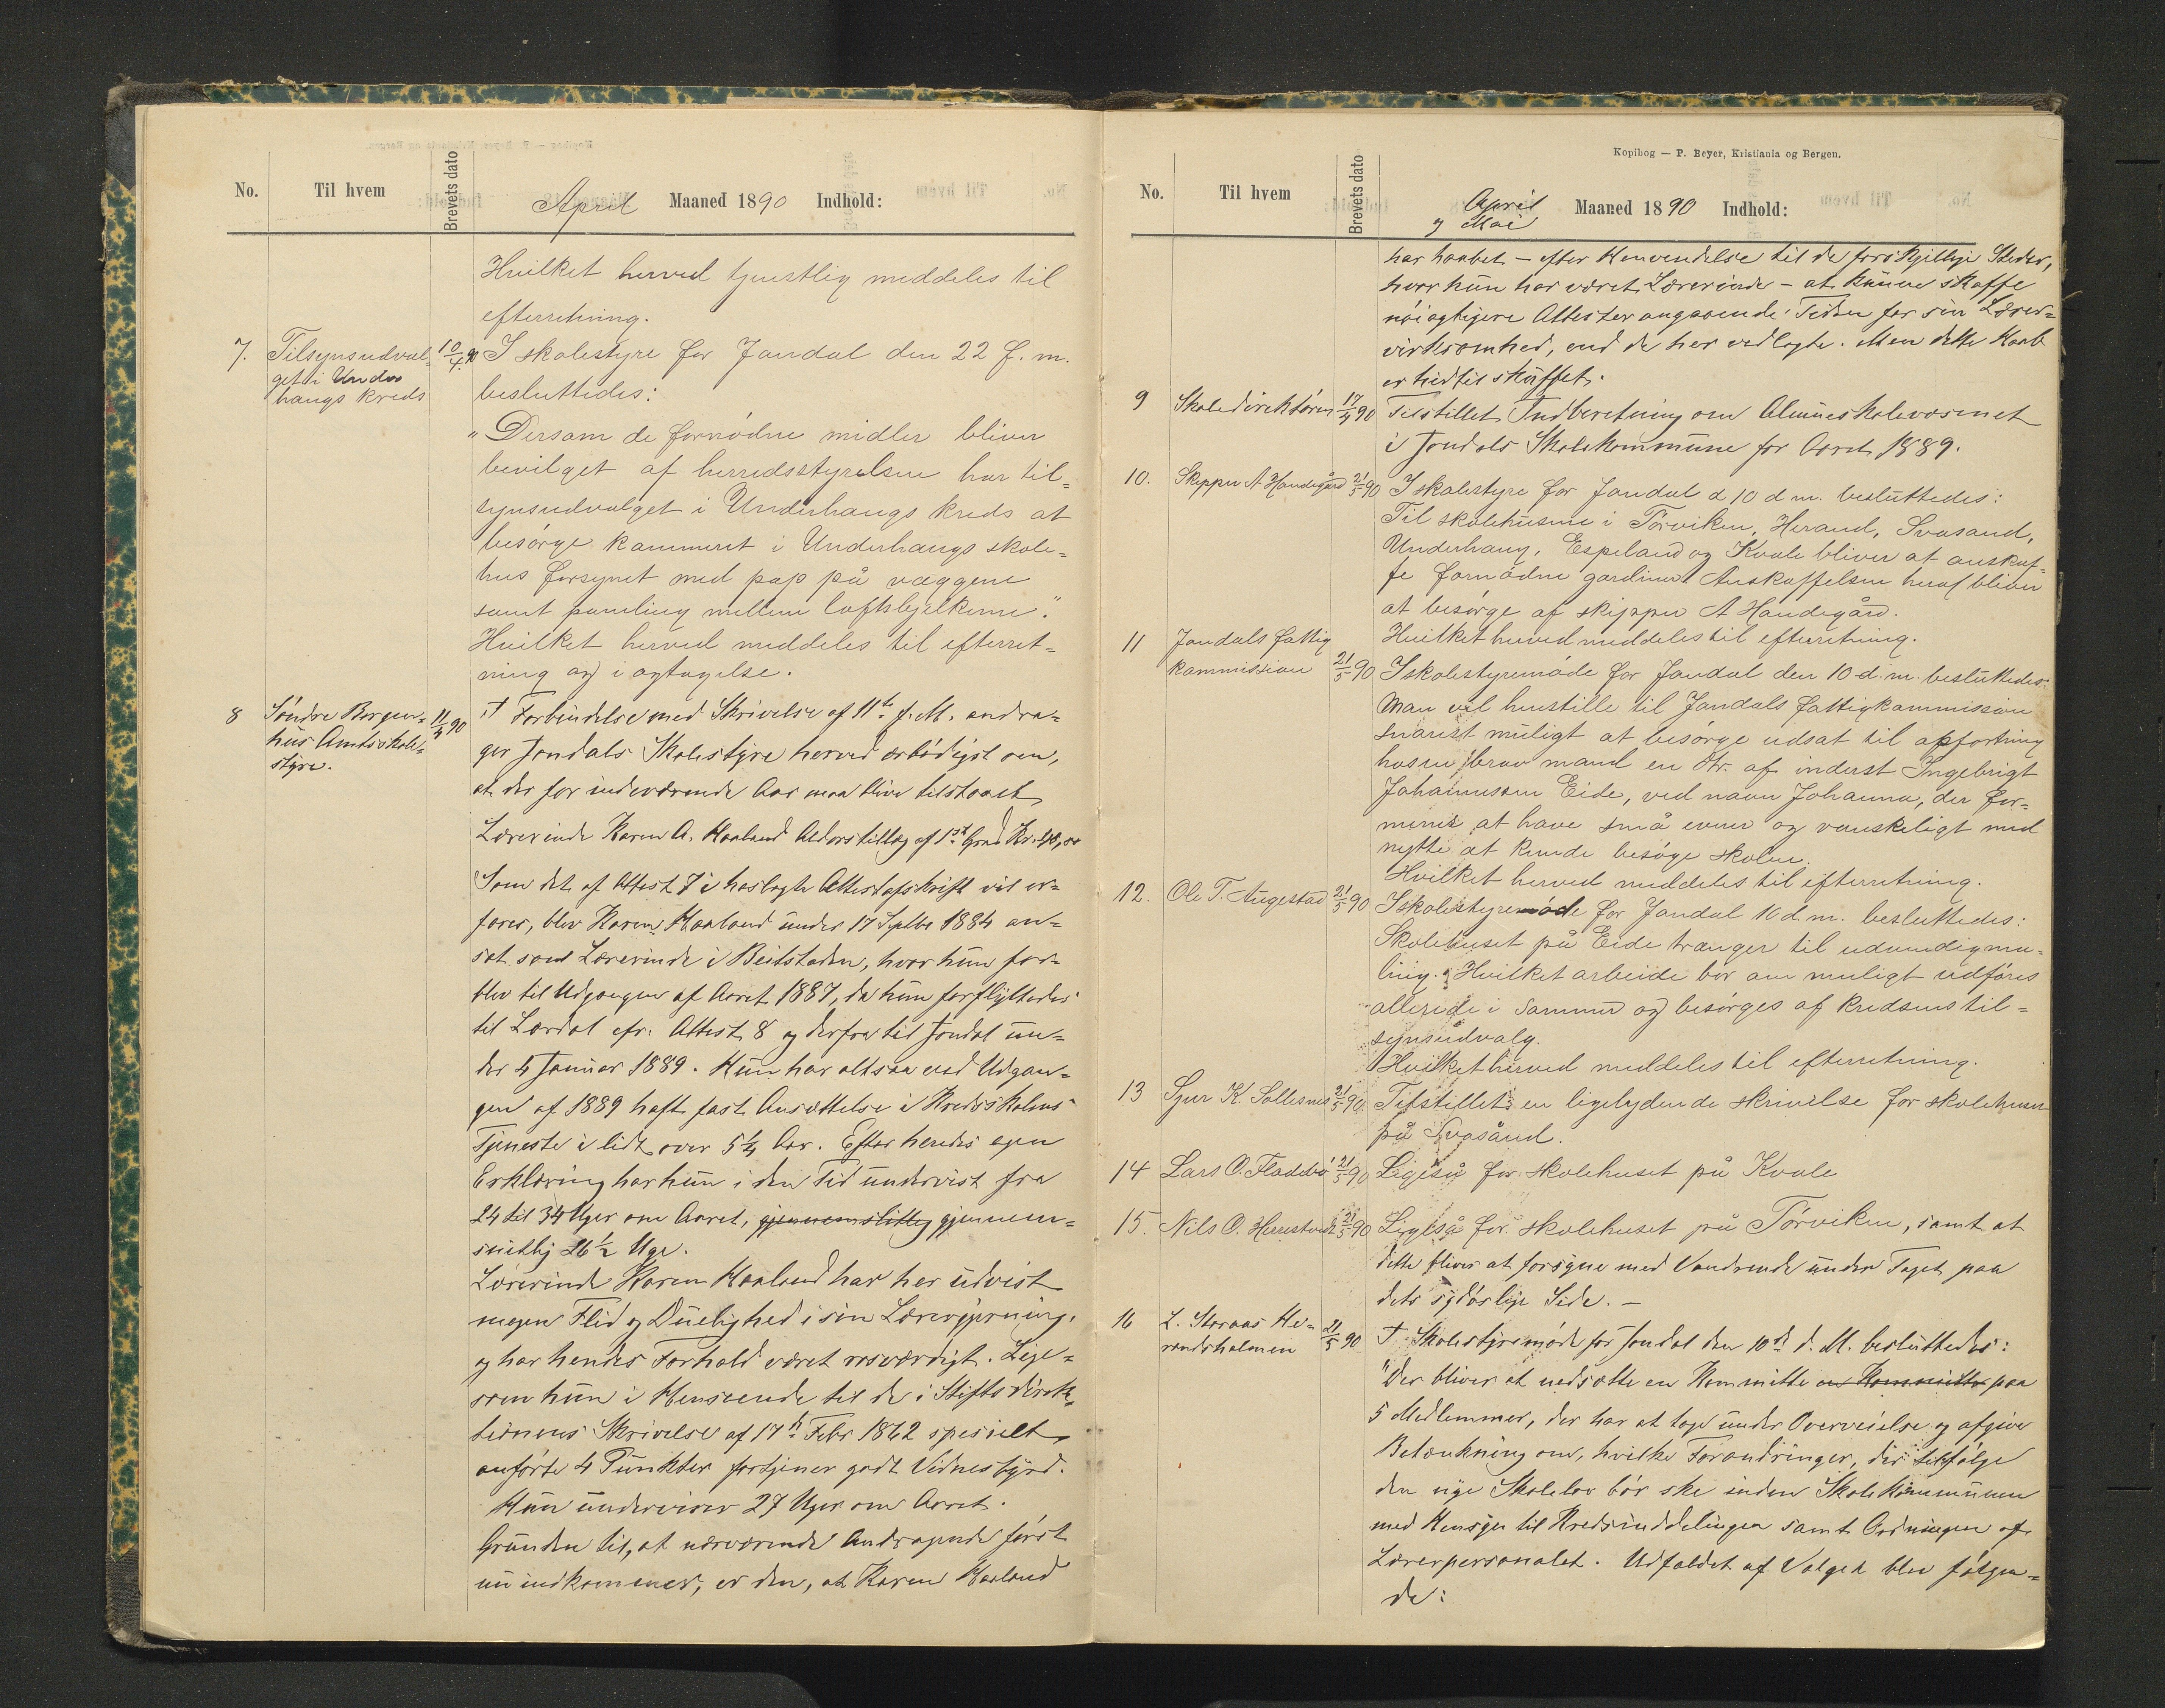 No.
Til hvem
Brevets dato
April Maaned 1890 Indhold:
Hvilket herved tjenstlig meddeles til
efterretning.
7. Tilsynsudval-
get i Under
haugs kreds
10/4 90
I skolestyre for Jondal den 22 f. m.
besluttedes:
"Dersom de fornødne midler bliver
bevilget af herredsstyrelsen har til-
synsudvalget i Underhaugs kreds at
besørge kammeret i Underhaugs skole-
hus forsynet med pap på væggene
samt paneling mellem loftsbjelkerne".
Hvilket herved meddeles til efterret-
ning og i agtagelse.
8 Søndre Bergen-
hus Amtsskole-
styre.
11/4 90
I Forbindelse med Skrivelse af 11te f. M. andra-
ger Jondals Skolestyre herved ærbødigst om,
at der for indeværende Aar maa blive tilstaaet
Lærerinde Karen A. Haaland Alderstillæg af 1ste Grad Kr.
Som det af Attest 7 i hoslagte Attestafskrift vil er-
fares, blev Karen Haaland under 17 Septbr 1884 an-
sat som Lærerinde i Beitstaden, hvor hun for-
blev til Udgangen af Aaret 1887, da hun forflyttedes
til Lærdal cfr. Attest 8 og derfra til Jondal un-
der 4 Januar 1889. Hun har altsaa ved Udgan-
gen af 1889 haft fast Ansættelse i Kredsskolens
Tjeneste i lidt over 5 1/4 Aar. Efter hendes egen
Erklæring har hun i den Tid undervist fra
24 til 34 Uger om Aaret, gjennemsnitlig gjennem-
snitlig 26 1/2 Uge.
Lærerinde Karen Haaland har her udvist
megen Flid og Duelighed i sin Lærergjerning,
og har hendes Forhold været rosværdigt. Lige-
som hun i Henseende til de i Stiftsdirek-
tionens Skrivelse af 17de Febr 1862 specielt
anførte 4 Punkter fortjener godt Vidnesbyrd.
Hun underviser 27 Uger om Aaret.
Grunden til, at nærværende Andragende først
nu indkommer, er den, at Karen Haaland
Kopibog — P. Beyer, Kristiania og Bergen.
No.
Til hvem
Brevets dato
April
og Mai
Maaned 1890 Indhold:
har haabet – efter Henvendelse til de forskjellige Steder,
hvor hun har været Lærerinde – at kunne skaffe
nøiagtigere Attester angaaende Tiden for sin Lærer-
virksomhed, end de her vedlagte. Men dette Haab
er hidtil skuffet.
9 Skoledirektøren 17/4 90
Tilstillet Indberetning om Almueskolevæsenet
i Jondals Skolekommune for Aaret 1889.
10. Skipper A Handegård 21/5 90
I skolestyre for Jondal d 10 d m. besluttedes:
Til skolehusene i Torviken, Herand, Svasand,
Underhaug, Espeland og Kvale bliver at anskaf-
fe fornødne gardiner. Anskaffelsen heraf bliver
at besørge af skipper A Handegård.
Hvilket herved meddeles til efterretning.
11 Jondals fattig
kommission 21/5 90
I skolestyremøde for Jondal den 10 d. m. besluttedes:
Man vil henstille til Jondals fattigkommission
snarest muligt at besørge udsat til opfostring
hos en brav mand en dtr. af inderst Ingebrigt
Johannesson Eide, ved navn Johanna, der for-
menes at have små evner og vanskeligt med
nytte at kunde besøge skolen.
Hvilket herved meddeles til efterretning.
12. Ole T. Augestad 21/5 90
I skolestyremøde for Jondal 10 d. m. besluttedes:
Skolehuset på Eide trænger til udvendig ma-
ling. Hvilket arbeide bør om muligt udføres
allerede i sommer og besørges af kredsens til-
synsudvalg.
Hvilket herved meddeles til efterretning.
13 Sjur K. Sollesnes 21/5 90
Tilstillet en ligelydende skrivelse for skolehuset
på Svasånd.
14 Lars O. Fladebø 21/5 90
Ligeså for skolehuset på Kvale
15. Nils O. Herestveit 21/5 90
Ligeså for skolehuset på Torviken, samt at
dette bliver at forsyne med Vandrende under Taget paa
dets sydøstlige Side. –
16 L. Storaas He-
randsholmen 21/5 90
I Skolestyremøde for Jondal den 10de d. M. besluttedes:
"Der bliver at nedsætte en Kommitte en Kommitte paa
5 Medlemmer, der har at tage under Overveielse og afgive
Betænkning om, hvilke Forandringer, der ifølge
den nye Skolelov bør ske inden Skolekommunen
med Hensyn til Kredsinddelingen samt Ordningen af
Lærerpersonalet. Udfaldet af Valget blev følgen-
de: